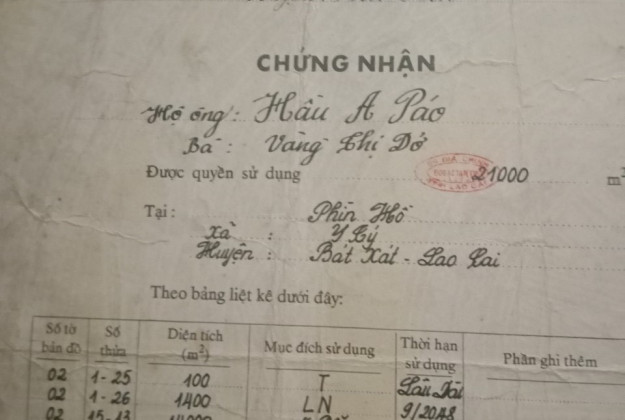 CHỨNG NHẬN
Hộ ông: Hầu A Páo
Bà: Vàng Thị Dở
Được quyền sử dụng 21000 m²
Tại: Phìn Hồ
Xã: Y Tý
Huyện: Bát Xát - Lao Cai
Theo bảng liệt kê dưới đây:
Số tờ bản đồ Số thửa Diện tích (m²) Mục đích sử dụng Thời hạn sử dụng Phần ghi thêm
02 1-25 100 T Lâu Dài
02 1-26 1400 LN 9/2048
02 15-13